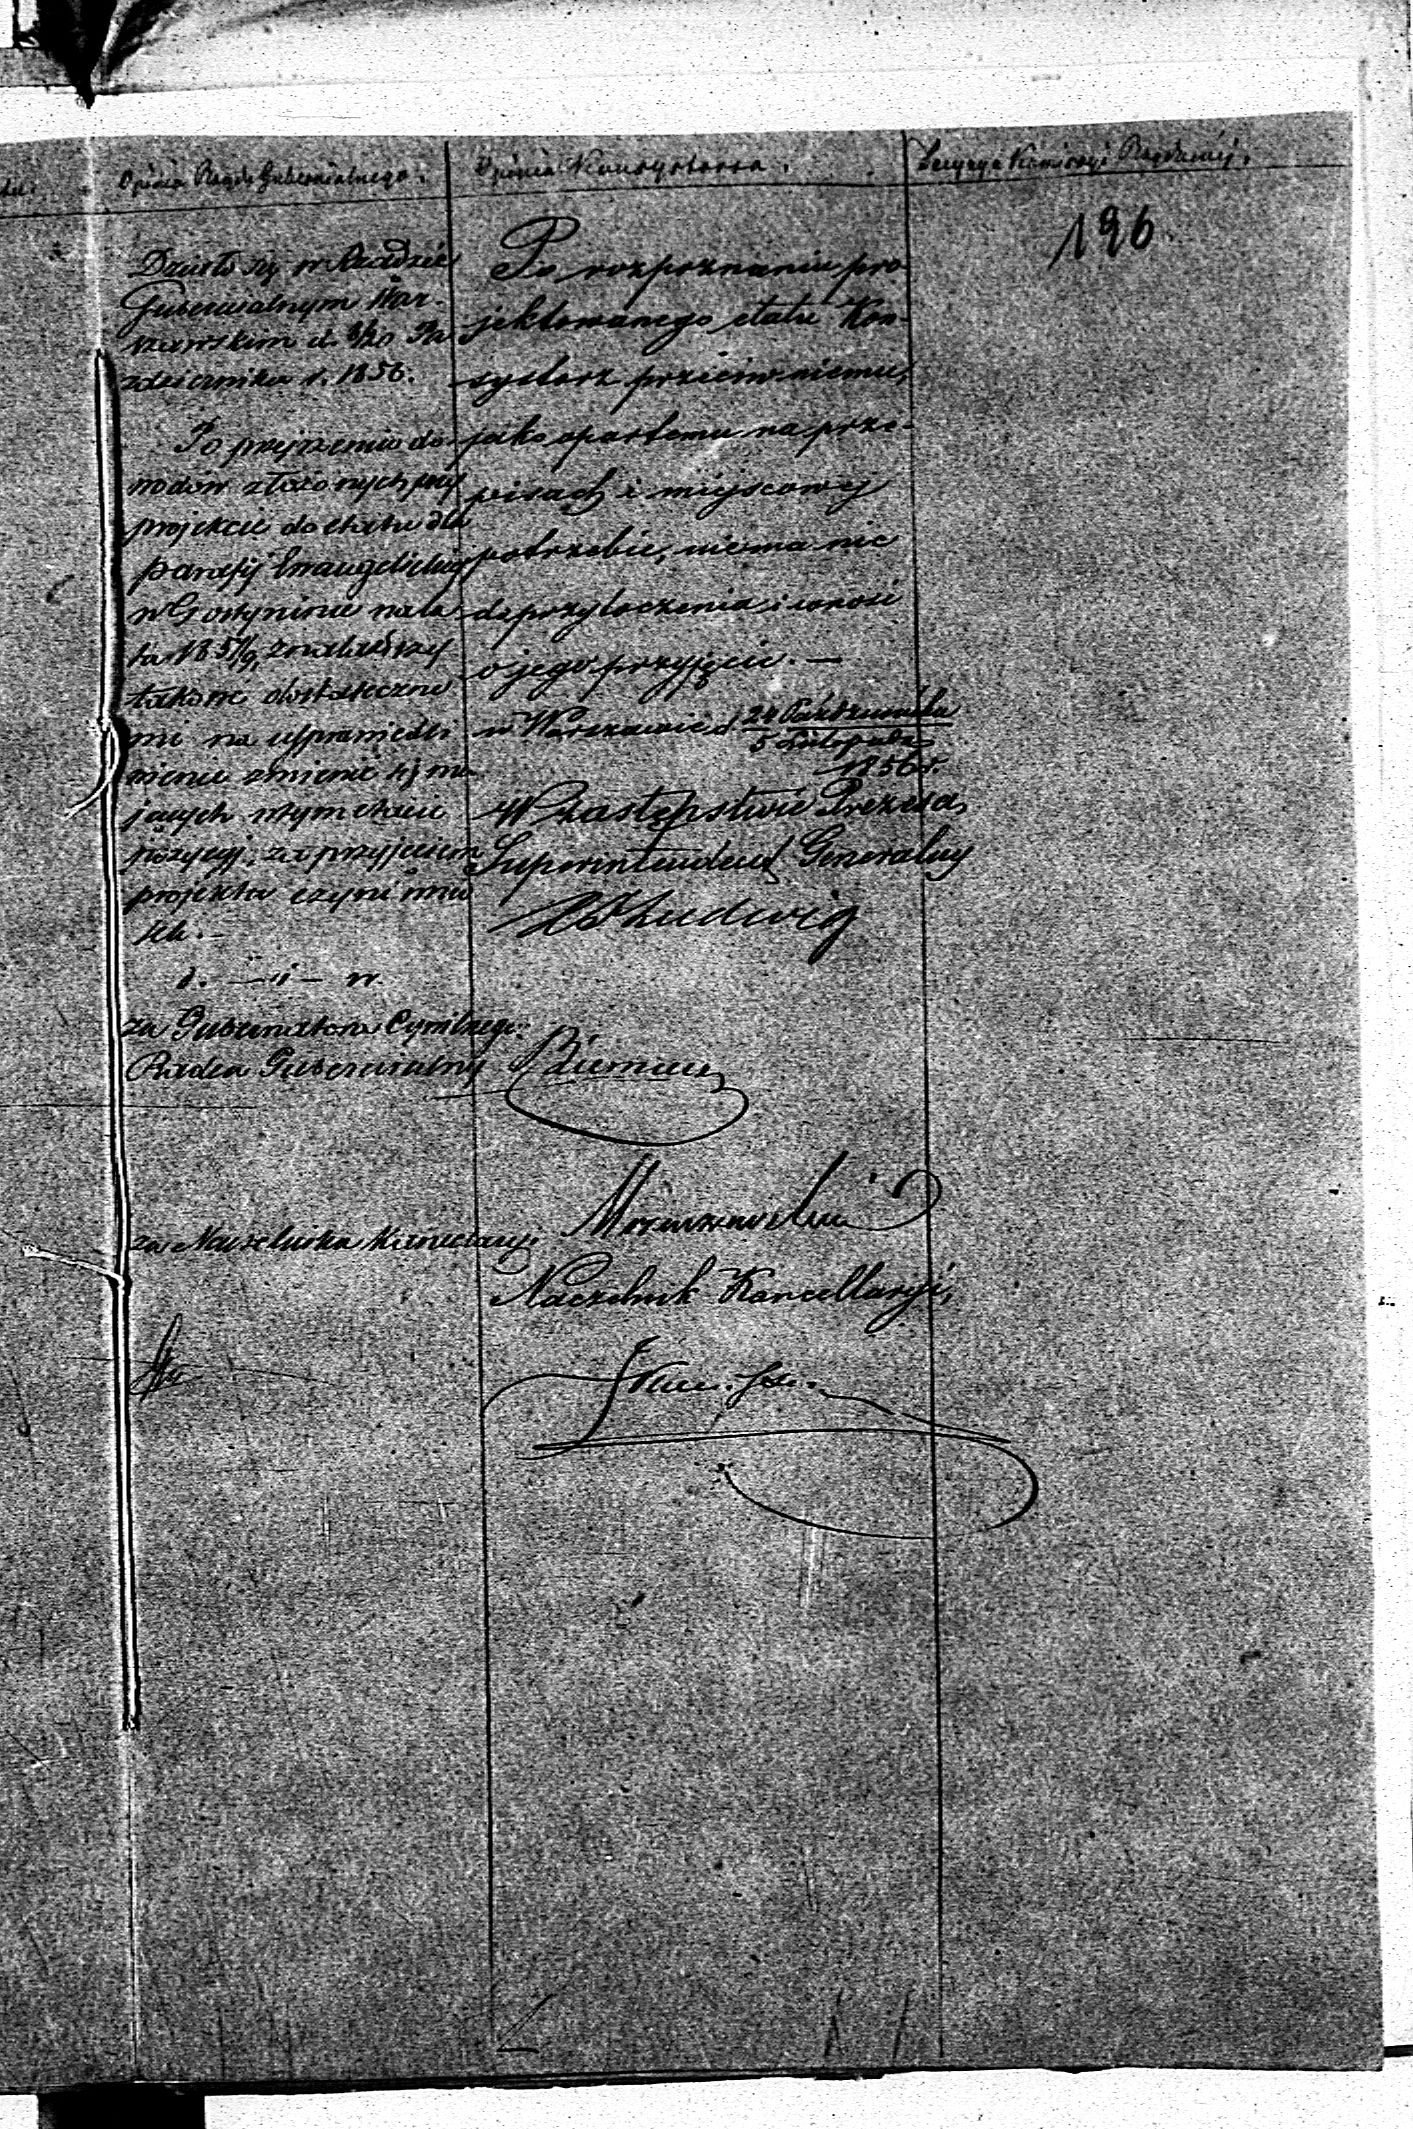 Opinia Rządu Gubernialnego.
Opinia Konsystorza.
Decyzya Komissyi Rządowéj.
196
Działo się w Rządzie
Gubernialnym War-
szawskim d. 8/20 Pa
ździernika r. 1856.
Po przejrzeniu do-
wodów złożonych przy
projekcie do etatu dla
parafij Ewangelickiej
w Gostyninie na la
ta 1857/9, znalazłszy
takowe dostateczne
mi na usprawiedli
wienie zmienić się ma
jących w tym etacie
pozycyj, za przyjęciem
projektu czyni wnio
sek. —
za Gubernatora Cywilnego
Radca Gubernialny
za Naczelnika Kancellaryi
Po rozpoznaniu pro-
jektowanego etatu Kon-
systorz przeciw niemu,
jako opartemu na prze-
pisach i miejscowej
potrzebie, niema nic
do przytoczenia i wnosi
o jego przyjęcie. —
w Warszawie d 24 Października
5 Listopada
1856 r.
W zastępstwie Prezesa,
Superintendent Generalny
Ludwig
Naczelnik Kancellaryi,